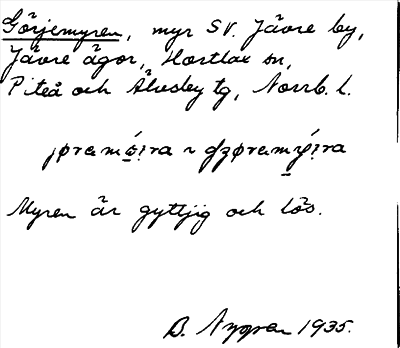 Görjemyren, myr SV. Jävre by,
Jävre ägor, Hortlax sn,
Piteå och Älvsby tg, Norrb. l.
Myren är gyttjig och lös.
B. Nygren 1935.